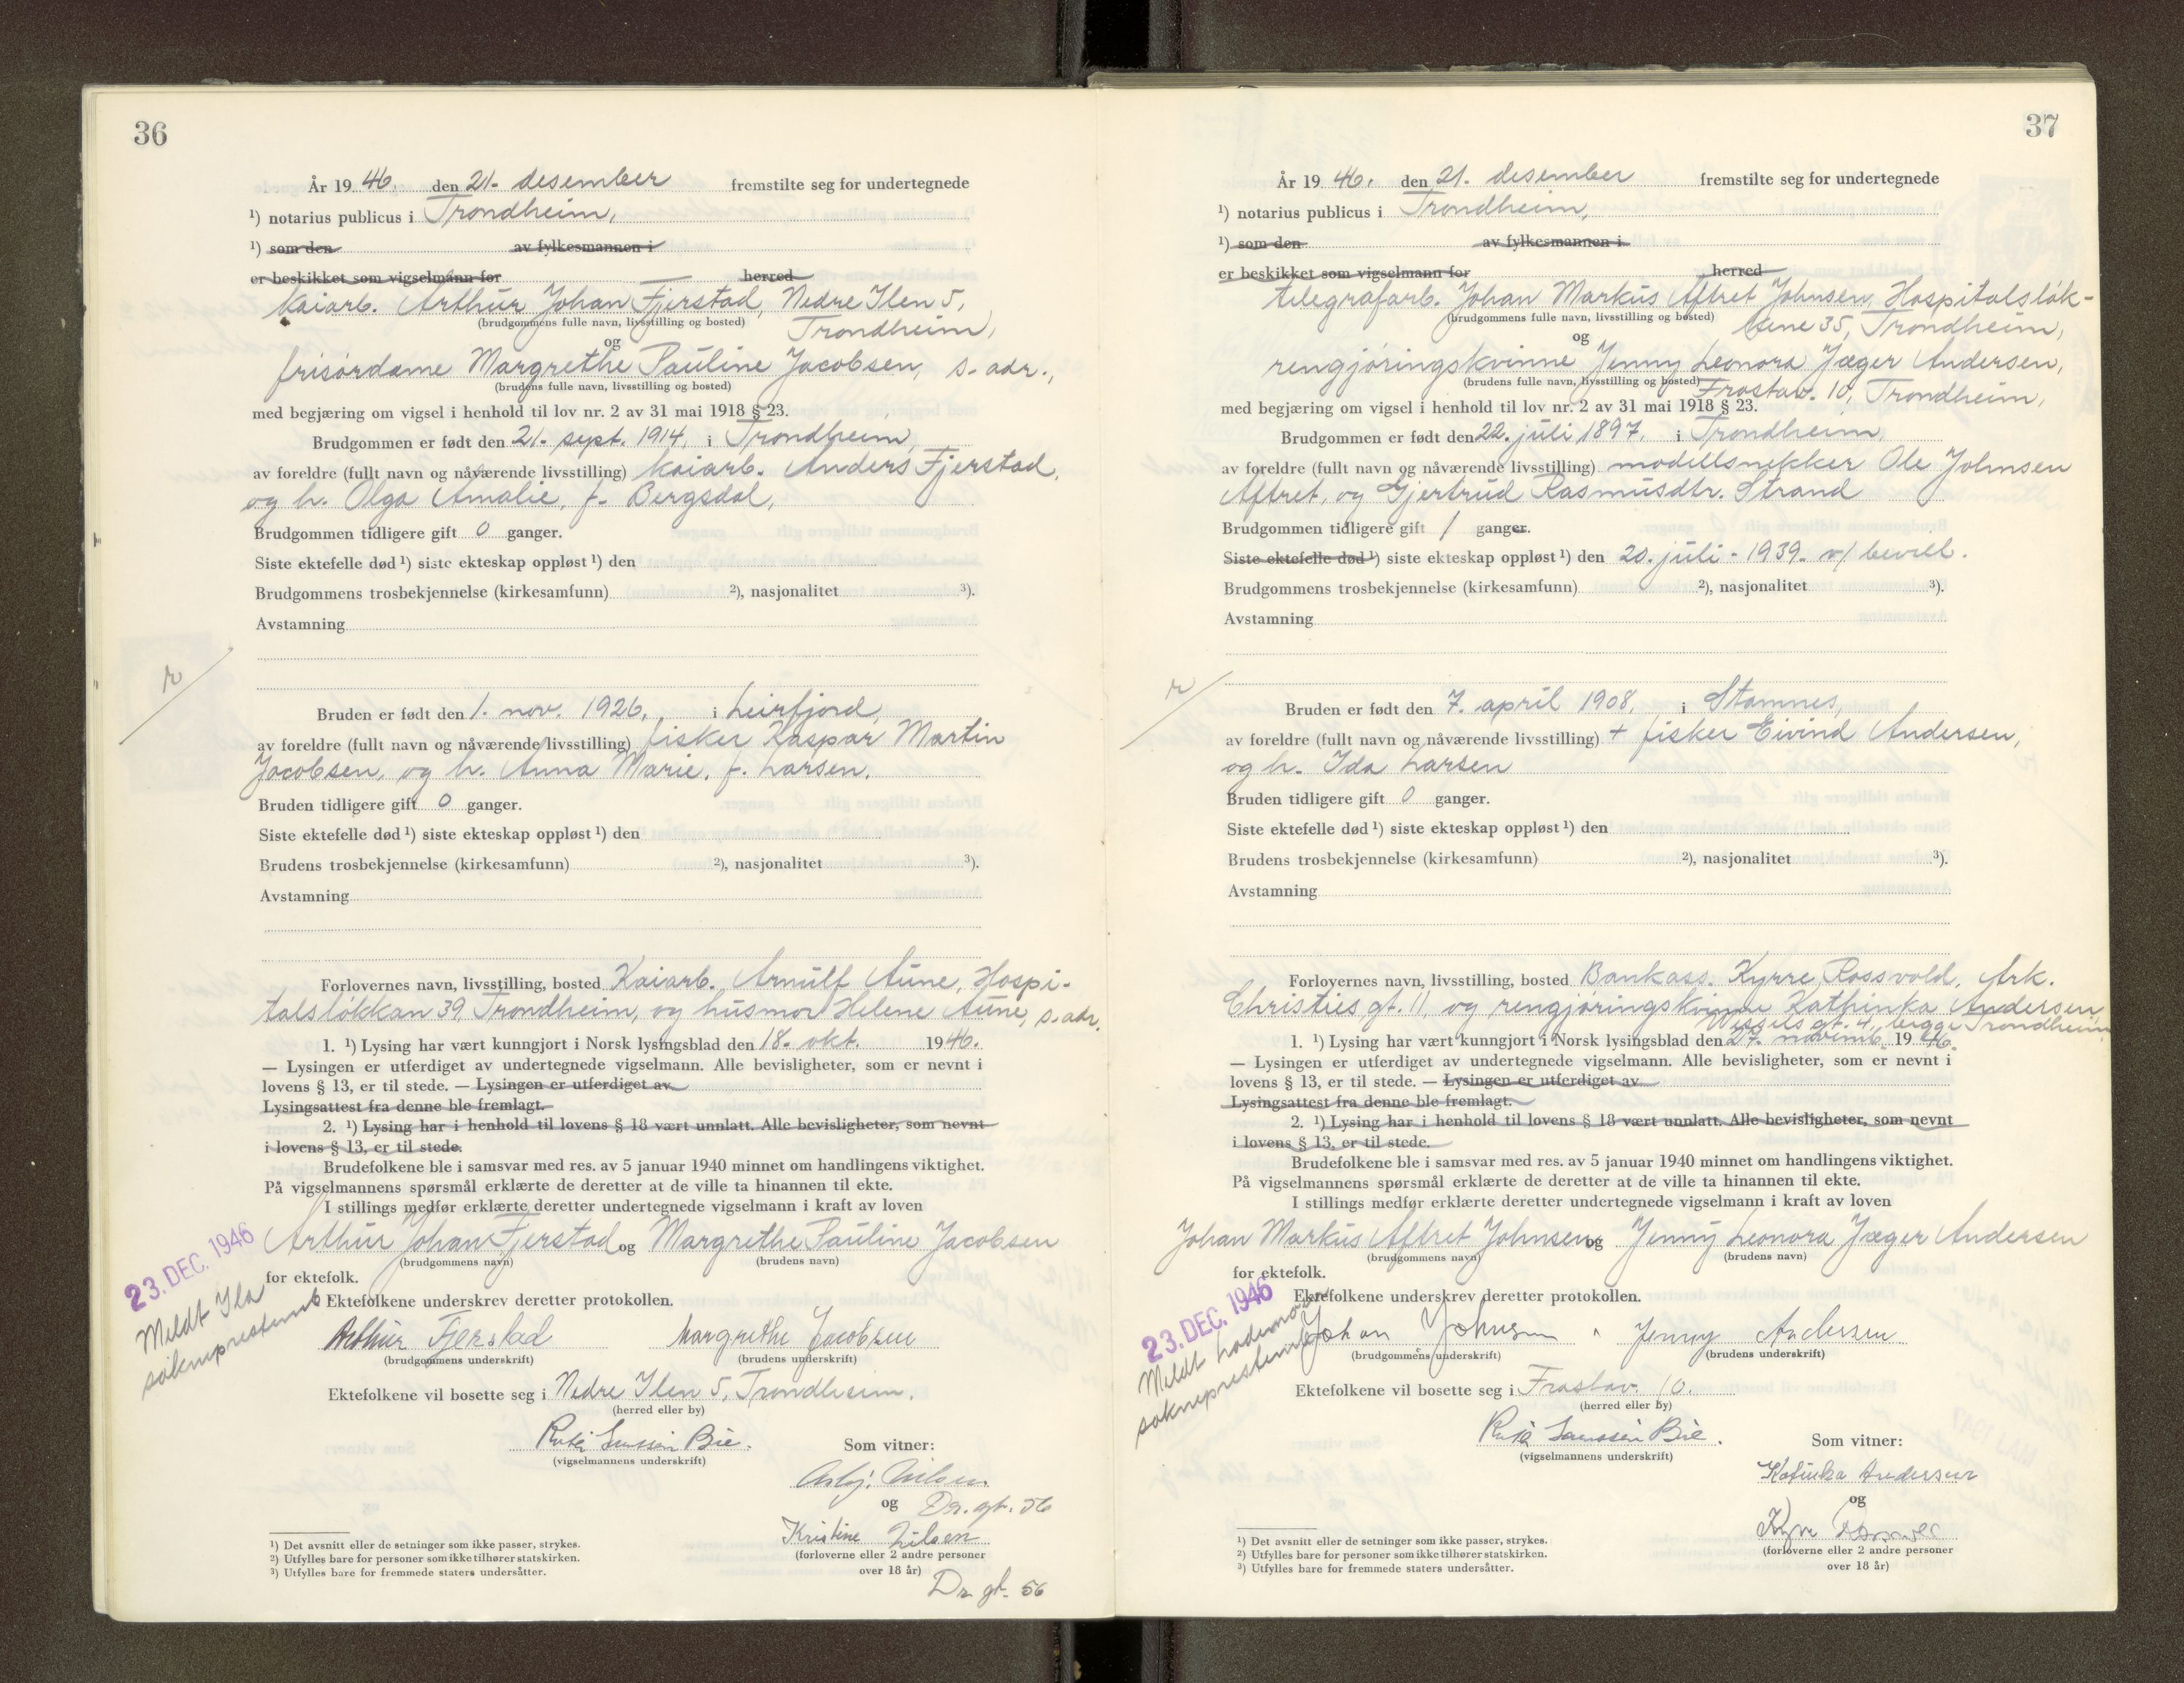 36
År 19 46. den 21. desember fremstilte seg for undertegnede
¹) notarius publicus i Trondheim,
¹) som den av fylkesmannen i
er beskikket som vigselmann for herred
kaiarb. Arthur Johan Fjerstad, Nedre Ilen 5,
(brudgommens fulle navn, livsstilling og bosted) Trondheim,
og
frisørdame Margrethe Pauline Jacobsen, s. adr.,
(brudens fulle navn, livsstilling og bosted)
med begjæring om vigsel i henhold til lov nr. 2 av 31 mai 1918 § 23.
Brudgommen er født den 21. sept. 1914, i Trondheim,
av foreldre (fullt navn og nåværende livsstilling) kaiarb. Anders Fjerstad,
og h. Olga Amalie, f. Bergsdal,
Brudgommen tidligere gift 0 ganger.
Siste ektefelle død ¹) siste ekteskap oppløst ¹) den
Brudgommens trosbekjennelse (kirkesamfunn) ²), nasjonalitet ³).
Avstamning
Bruden er født den 1. nov. 1926, i Leirfjord,
av foreldre (fullt navn og nåværende livsstilling) fisker Kaspar Martin
Jacobsen, og h. Anna Marie, f. Larsen.
Bruden tidligere gift 0 ganger.
Siste ektefelle død ¹) siste ekteskap oppløst ¹) den
Brudens trosbekjennelse (kirkesamfunn) ²), nasjonalitet ³).
Avstamning
Forlovernes navn, livsstilling, bosted Kaiarb. Arnulf Aune, Hospi-
talsløkkan 39, Trondheim, og husmor Helene Aune, s. adr.
1. ¹) Lysing har vært kunngjort i Norsk lysingsblad den 18. okt. 19 46.
— Lysingen er utferdiget av undertegnede vigselmann. Alle bevisligheter, som er nevnt i
lovens § 13, er til stede. — Lysingen er utferdiget av
Lysingsattest fra denne ble fremlagt.
2. ¹) Lysing har i henhold til lovens § 18 vært unnlatt. Alle bevisligheter, som nevnt
i lovens § 13, er til stede.
Brudefolkene ble i samsvar med res. av 5 januar 1940 minnet om handlingens viktighet.
På vigselmannens spørsmål erklærte de deretter at de ville ta hinannen til ekte.
I stillings medfør erklærte deretter undertegnede vigselmann i kraft av loven
Arthur Johan Fjerstad og Margrethe Pauline Jacobsen
(brudgommens navn) (brudens navn)
for ektefolk.
23. DEC. 1946
Meldt Ila
sokneprestemb
Ektefolkene underskrev deretter protokollen.
Arthur Fjerstad Margrethe Jacobsen
(brudgommens underskrift) (brudens underskrift)
Ektefolkene vil bosette seg i Nedre Ilen 5, Trondheim.
(herred eller by)
Bie. Som vitner:
(vigselmannens underskrift)
Asbj. Nilsen
og Dr. gt. 56
Kristine Nilsen
(forloverne eller 2 andre personer
over 18 år)
Dr. gt. 56
¹) Det avsnitt eller de setninger som ikke passer, strykes.
²) Utfylles bare for personer som ikke tilhører statskirken.
³) Utfylles bare for fremmede staters undersåtter.
37
År 19 46. den 21. desember fremstilte seg for undertegnede
¹) notarius publicus i Trondheim,
¹) som den av fylkesmannen i
er beskikket som vigselmann for herred
telegrafarb. Johan Markus Aftret Johnsen, Hospitalsløk-
(brudgommens fulle navn, livsstilling og bosted) kene 35, Trondheim,
og
rengjøringskvinne Jenny Leonora Jæger Andersen,
(brudens fulle navn, livsstilling og bosted) Frostav. 10, Trondheim,
med begjæring om vigsel i henhold til lov nr. 2 av 31 mai 1918 § 23.
Brudgommen er født den 22. juli 1897, i Trondheim,
av foreldre (fullt navn og nåværende livsstilling) modellsnekker Ole Johnsen
Aftret, og Gjertrud Rasmusdtr. Strand
Brudgommen tidligere gift 1 ganger.
Siste ektefelle død ¹) siste ekteskap oppløst ¹) den 20. juli - 1939. v/ bevill.
Brudgommens trosbekjennelse (kirkesamfunn) ²), nasjonalitet ³).
Avstamning
Bruden er født den 7. april 1908, i Stamnes,
av foreldre (fullt navn og nåværende livsstilling) + fisker Eivind Andersen,
og h. Ida Larsen
Bruden tidligere gift 0 ganger.
Siste ektefelle død ¹) siste ekteskap oppløst ¹) den
Brudens trosbekjennelse (kirkesamfunn) ²), nasjonalitet ³).
Avstamning
Forlovernes navn, livsstilling, bosted Bankass. Kyrre Rossvold, Ark.
Christies gt. 11, og rengjøringskvinne Kathinka Andersen,
Wessels gt. 4, begge Trondheim
1. ¹) Lysing har vært kunngjort i Norsk lysingsblad den 27. novemb. 19 46.
— Lysingen er utferdiget av undertegnede vigselmann. Alle bevisligheter, som er nevnt i
lovens § 13, er til stede. — Lysingen er utferdiget av
Lysingsattest fra denne ble fremlagt.
2. ¹) Lysing har i henhold til lovens § 18 vært unnlatt. Alle bevisligheter, som nevnt
i lovens § 13, er til stede.
Brudefolkene ble i samsvar med res. av 5 januar 1940 minnet om handlingens viktighet.
På vigselmannens spørsmål erklærte de deretter at de ville ta hinannen til ekte.
I stillings medfør erklærte deretter undertegnede vigselmann i kraft av loven
Johan Markus Aftret Johnsen og Jenny Leonora Jæger Andersen
(brudgommens navn) (brudens navn)
for ektefolk.
23. DEC. 1946
Meldt Lademoen
sokneprestemb
Ektefolkene underskrev deretter protokollen.
Johan Johnsen Jenny Andersen
(brudgommens underskrift) (brudens underskrift)
Ektefolkene vil bosette seg i Frostav. 10.
(herred eller by)
Bie. Som vitner:
(vigselmannens underskrift)
Katinka Andersen
og
(forloverne eller 2 andre personer
over 18 år)
¹) Det avsnitt eller de setninger som ikke passer, strykes.
²) Utfylles bare for personer som ikke tilhører statskirken.
³) Utfylles bare for fremmede staters undersåtter.